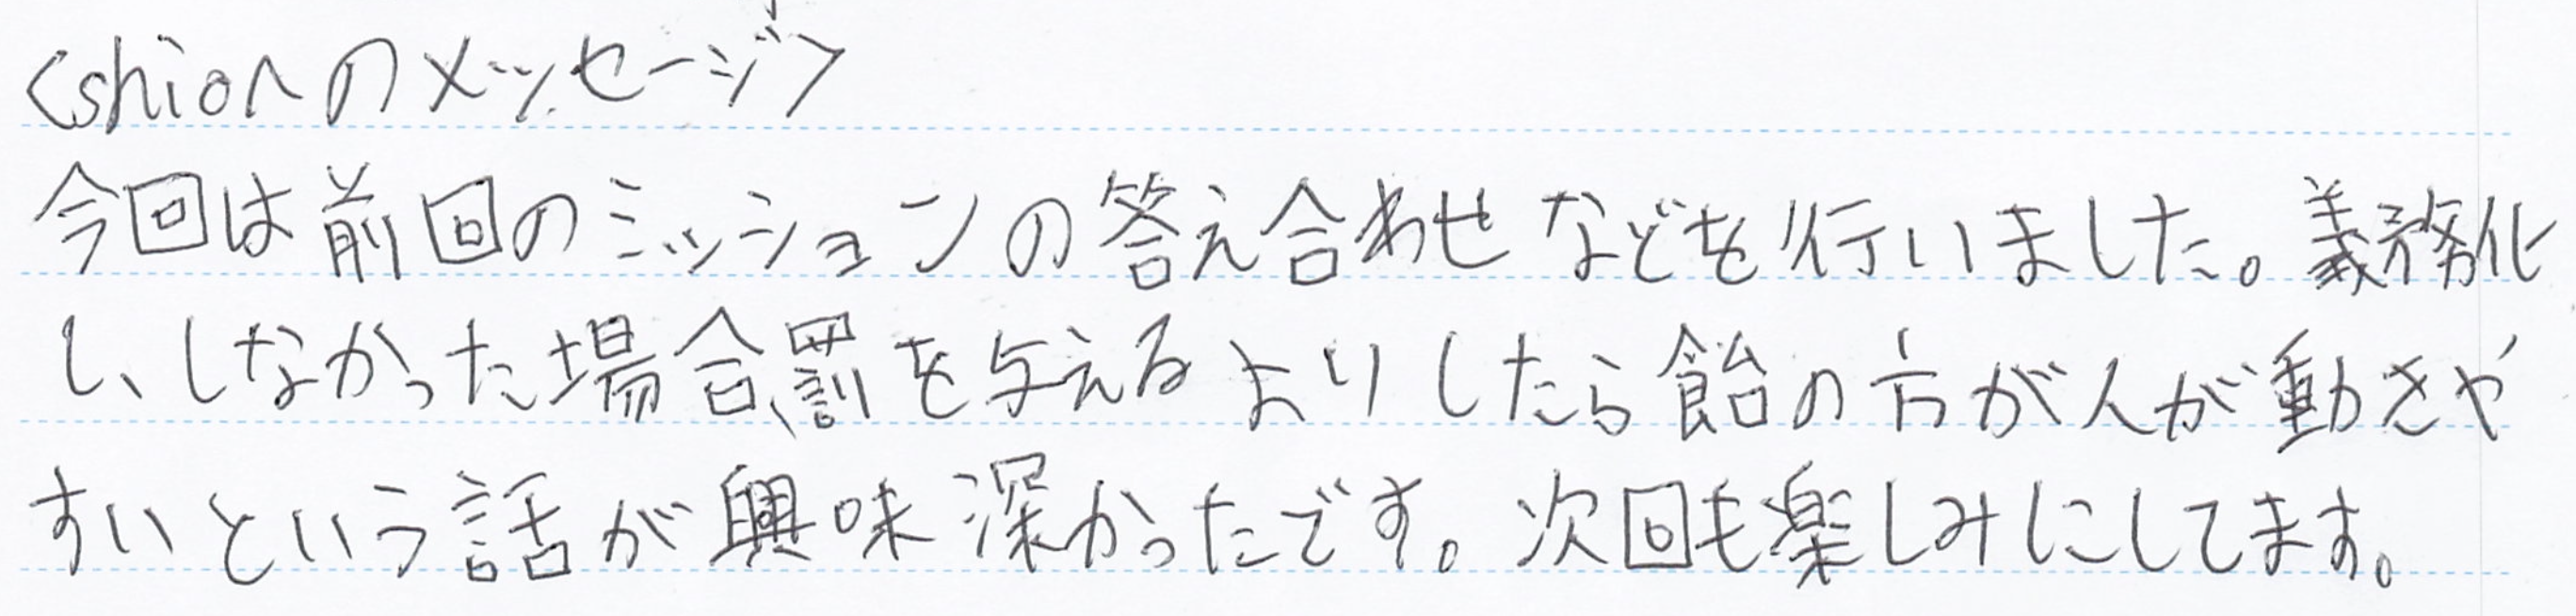 <shioへのメッセージ>
今回は前回のミッションの答え合わせなどを行いました。義務化
し、しなかった場合罰を与えるよりしたら飴の方が人が動きや
すいという話が興味深かったです。次回も楽しみにしてます。